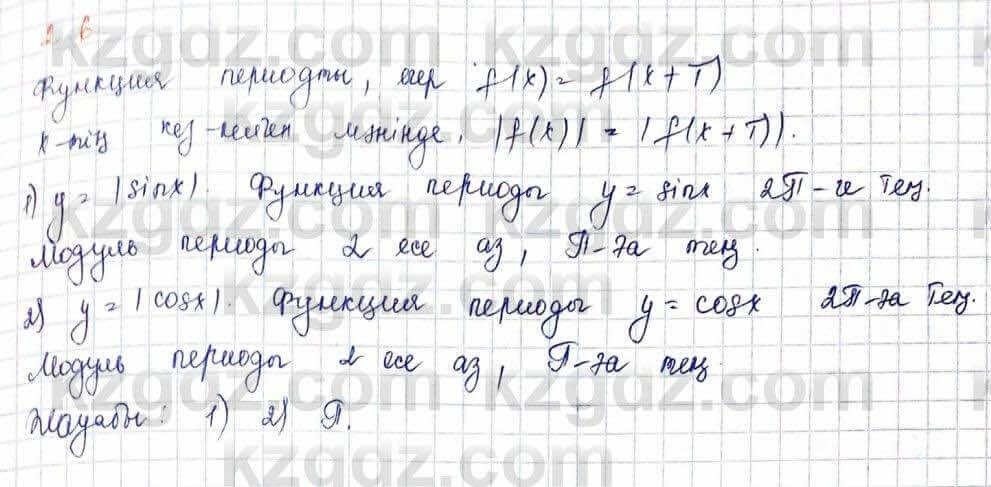 2. 6
Функция периодты, егер f(x) = f(x+T)
x-тің кез-келген мәнінде. |f(x)| = |f(x+T)|.
1) y = |sinx|. Функция периоды y = sinx 2П-ге тең.
Модуль периоды 2 есе аз, П-га тең.
2) y = |cosx|. Функция периоды y = cosx 2П-га тең.
Модуль периоды 2 есе аз, П-га тең.
Жауабы: 1) 2) П.
kzgdz.com kzgdz.com
kzgdz.com kzgdz.com
kzgdz.com kzgdz.com
kzgdz.com kzgdz.com
kzgdz.com kzgdz.com
kzgdz.com